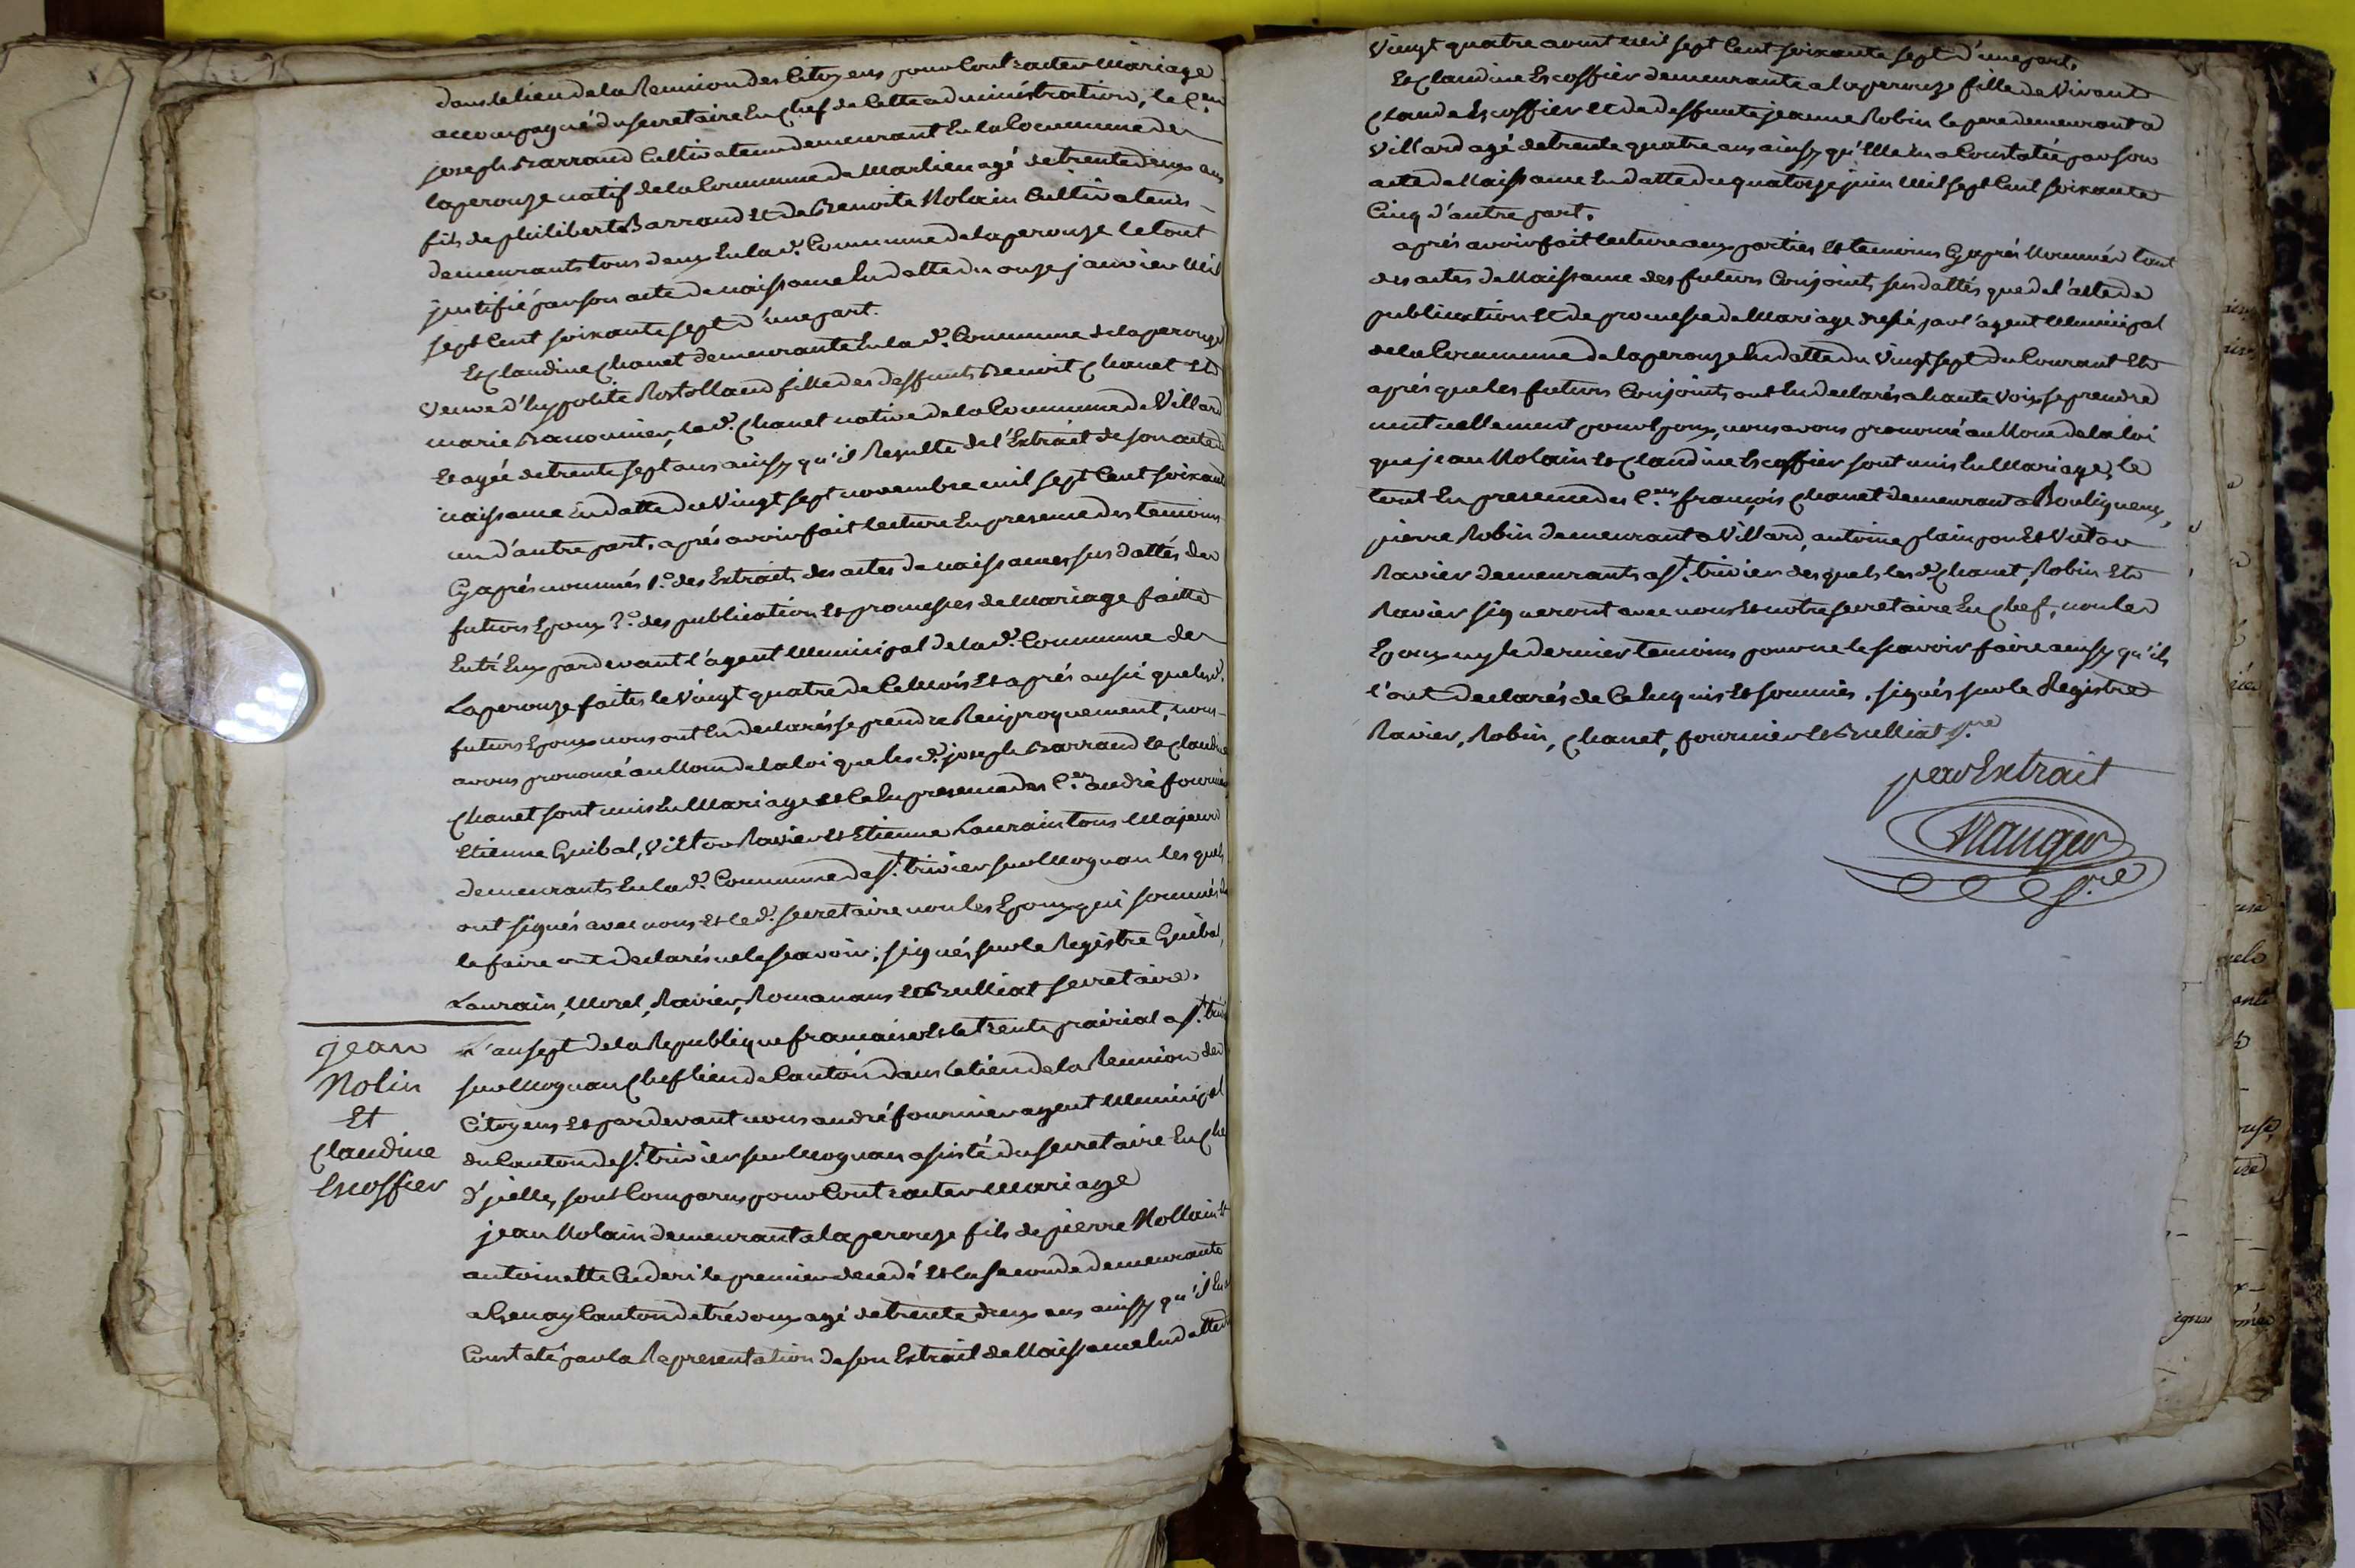 dans le lieu de la Reunion des Citoyens pour Contracter Mariage
accompagné du secretaire En Chef de Cette administration, le C.en
joseph Barraud Cultivateur demeurant En la Commune de
laperouze natif de la Commune de Marlieu agé de trente deux ans
fils de philibert Barraud Et de Benoite Molain Cultivateurs
demeurants tous deux En la d.e Commune de laperouze le tout
justifié par son acte de naissance En datte du onze janvier Mil
sept Cent soixante sept d'une part.
Et Claudine Chanet demeurante En la d.e Commune de laperouze
Veuve d'hypolite Rostolland fille des deffunts Benoit Chanet Et
marie Baconnier, la d.e Chanet native de la Commune de Villard
Et agée de trente sept ans ainsy qu'il Resulte de l'Extrait de son acte de
naissance En datte du Vingt sept novembre mil sept Cent soixante
un d'autre part. aprés avoir fait lecture En presence des temoins
Cy aprés nommés 1.o des Extraits des actes de naissances sus dattés des
futurs Epoux 2.o des publication Et promesses de Mariage faitte
Entr'Eux pardevant l'agent Municipal de la d.e Commune de
Laperouze faites le Vingt quatre de Ce Mois Et aprés aussi que les d.
futurs Epoux nous ont Eu declarés se prendre Reciproquement, nous
avons prononcé au Nom de la loi que les d. joseph Barraud Et Claudine
Chanet sont unis En Mariage Et Ce En presence des C.en andré fournier
Etienne Guibal, Victor Ravier Et Etienne Laurain tous Majeurs
demeurants En la d.e Commune de S.t trivier sur Moignan les quels
ont signés avec nous Et le d. secretaire non les Epoux qui sommés de
le faire ont declarés ne le scavoir; signés sur le Registre Guibal,
Laurain, Morel, Ravier, Romanans Et Brulliat secretaire.
jean
Molin
Et
Claudine
Escoffier
L'an sept de la Republique francaise Et le trente prairial a S.t trivier
sur Moignan Chef lieu de Canton dans le lieu de la Reunion des
Citoyens Et pardevant nous andré fournier agent Municipal
du Canton de S.t trivier sur Moignan assisté du secretaire En Chef
d'jcelle, sont Comparus pour Contracter Mariage
jean Molain demeurant a laperouze fils de pierre Mollain Et
antoinette le premier decedé Et la seconde demeurante
a Genay Canton de trévoux agé de trente deux ans ainsy qu'il En a
Constaté par la Representation de son Extrait de Naissance En datte du
Vingt quatre avril Mil sept Cent soixante sept d'une part.
Et Claudine Escoffier demeurante a laperouze fille de Vivant
Claude Escoffier Et de deffunte jeanne Robin le pere demeurant a
Villard agé de trente quatre ans ainsy qu'Elle En a Constatée par son
acte de Naissance En datte du quatorze juin Mil sept Cent soixante
Cinq d'autre part.
aprés avoir fait lecture aux parties Et temoins Cy aprés Nommés tant
des actes de Naissance des futurs Conjoints sus dattés que de l'acte de
publication Et de promesse de Mariage dressé par l'agent Municipal
de la Commune de laperouze En datte du Vingt sept du Courant Et
aprés que les futurs Conjoints ont Eu declarés a haute Voix se prendre
mutuellement pour Epoux, nous avons prononcé au Nom de la loi
que jean Molain Et Claudine Escoffier sont unis En Mariage, le
tout En presence des C.ens françois Chanet demeurant a Bouligneux,
pierre Robin demeurant a Villard, antoine plainpon Et Victor
Ravier demeurants a S.t trivier des quels les d. Chanet, Robin Et
Ravier signeront avec nous Et notre secretaire En Chef, non les
Epoux ny le dernier temoins pour ne le scavoir faire ainsy qu'ils
l'ont declarés de Ce Enquis Et sommés. signés sur le Registre
Ravier, Robin, Chanet, fournier Et Brulliat S.re
par Extrait
Mauger
S.re